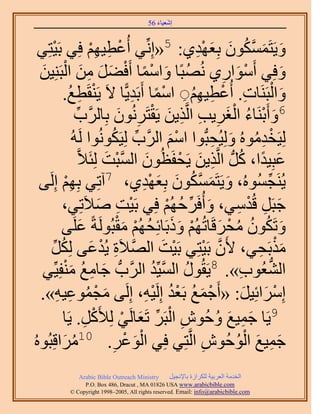 إشعياء 56
وَيَتَمَسَّكُونَ بِعَهْدِي: 5«إِنِّي أُعْطِيهِمْ فِي بَيْتِي
وَفِي أَسْوَارِي نُصُبًا وَاسْمًا أَفْضَلَ مِنَ الْبَنِينَ
وَالْبَنَاتِ. أُعْطِيهِمُ اسْمًا أَبَدِيًّا لاَ يَنْقَطِعُ.
6وَأَبْنَاءُ الْغَرِيبِ الَّذِينَ يَقْتَرِنُونَ بِالرَّبِّ
لِيَخْدِمُوهُ وَلِيُحِبُّوا اسْمَ الرَّبِّ لِيَكُونُوا لَهُ
عَبِيدًا، كُلُّ الَّذِينَ يَحْفَظُونَ السَّبْتَ لِئَلاَّ
يُنَجِّسُوهُ، وَيَتَمَسَّكُونَ بِعَهْدِي، 7آتِي بِهِمْ إِلَى
جَبَلِ قُدْسِي، وَأُفَرِّحُهُمْ فِي بَيْتِ صَلاَتِي،
وَتَكُونُ مُحْرَقَاتُهُمْ وَذَبَائِحُهُمْ مَقْبُولَةً عَلَى
مَذْبَحِي، لأَنَّ بَيْتِي بَيْتَ الصَّلاَةِ يُدْعَى لِكُلِّ
الشُّعُوبِ». 8يَقُولُ السَّيِّدُ الرَّبُّ جَامِعُ مَنْفِيِّي
إِسْرَائِيلَ: «أَجْمَعُ بَعْدُ إِلَيْهِ، إِلَى مَجْمُوعِيهِ».
9يَا جَمِيعَ وُحُوشِ الْبَرِّ تَعَالَيْ لِلأَكْلِ. يَا
جَمِيعَ الْوُحُوشِ الَّتِي فِي الْوَعْرِ. 10مُرَاقِبُوهُ
Arabic Bible Outreach Ministry الخدمة العربية للكرازة بالإنجيل
P.O. Box 486, Dracut , MA 01826 USA www.arabicbible.com
© Copyright 1998-2005, All rights reserved. Email: info@arabicbible.com